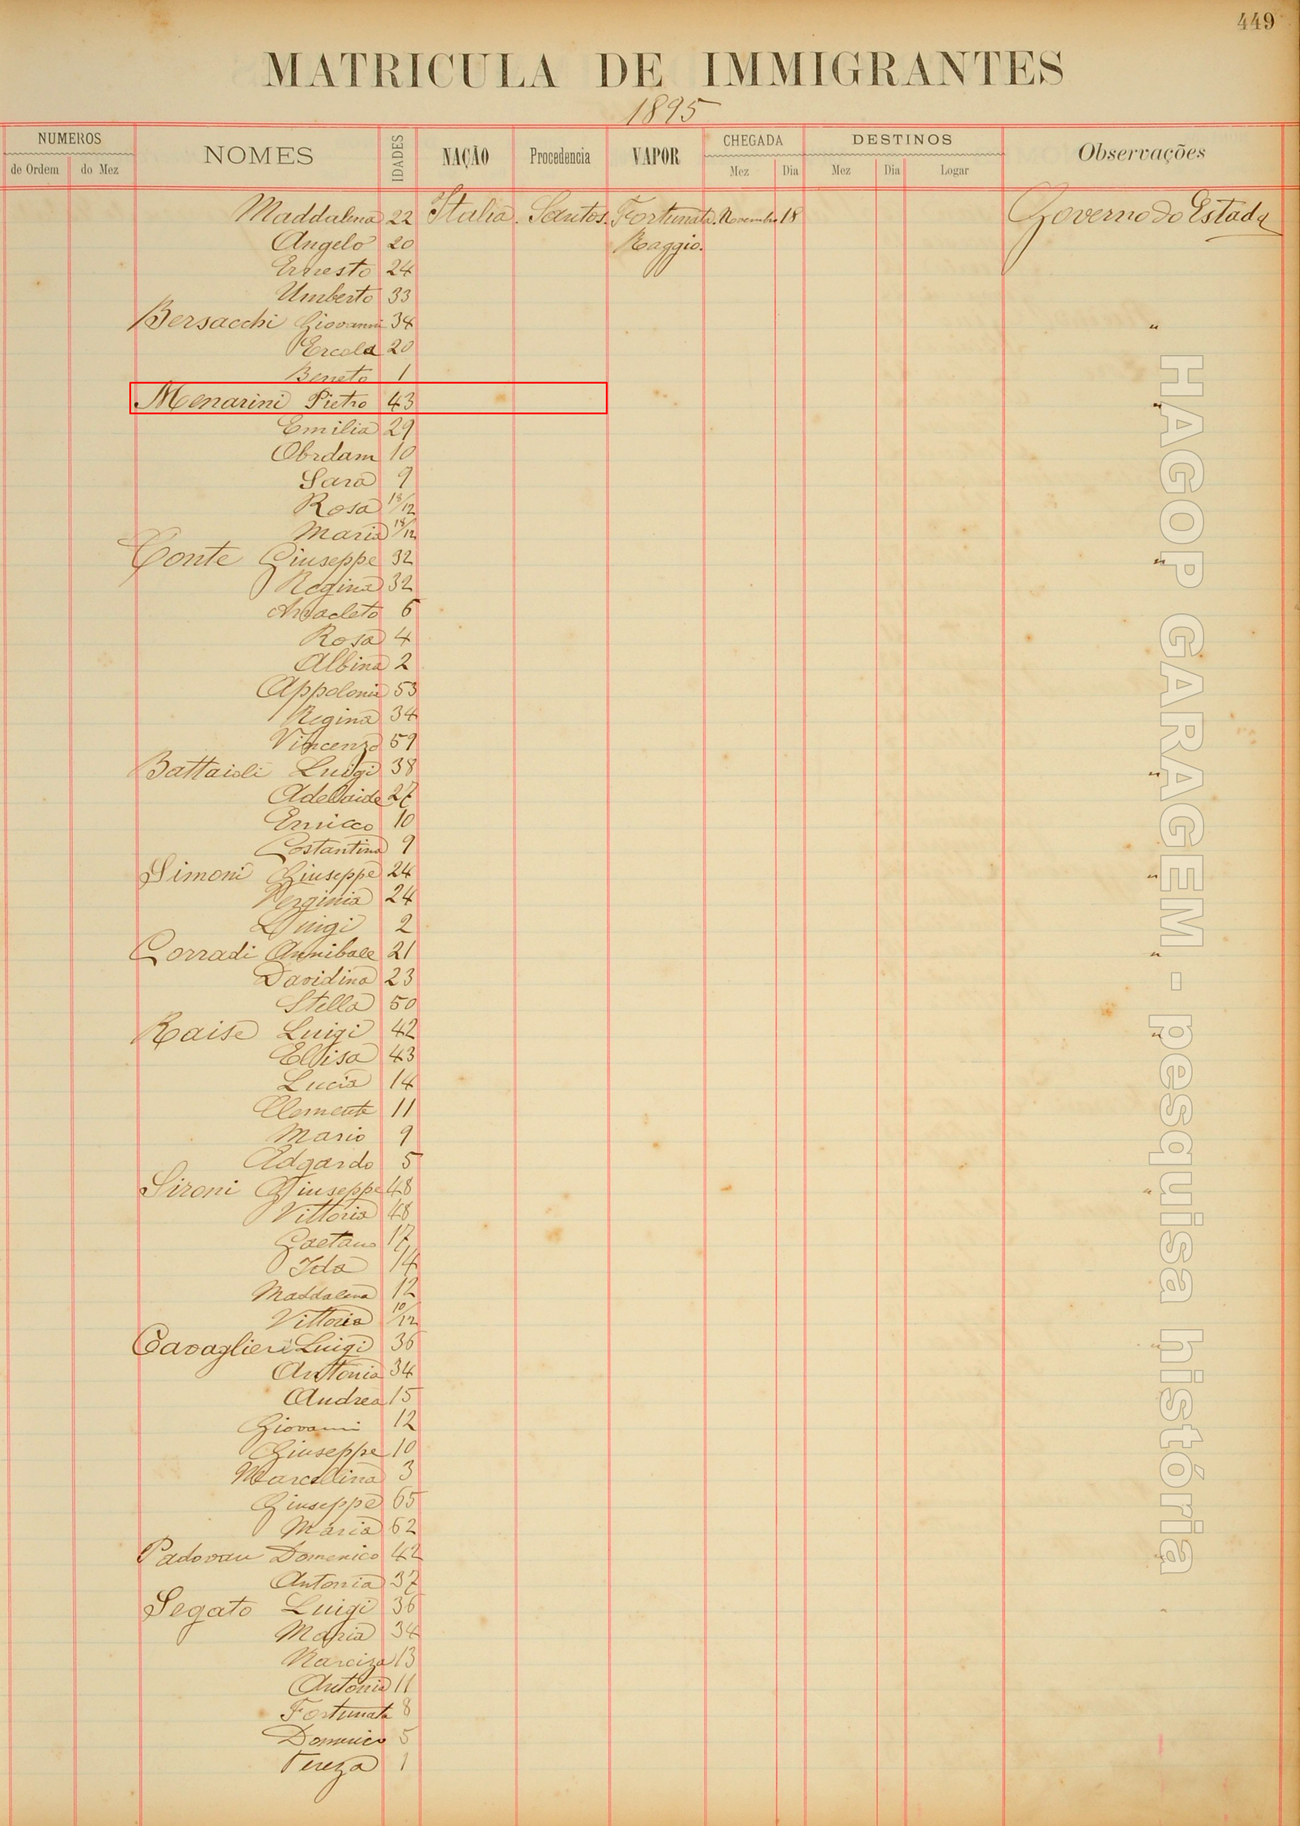 449
MATRICULA DE IMMIGRANTES
1895
NUMEROS
de Ordem do Mez
NOMES
IDADES
NAÇÃO
Procedencia
VAPOR
CHEGADA
Mez Dia
DESTINOS
Mez Dia Logar
Observações
Maddalena 22 Italia. Santos. Fortunata. Novembro 18 Governo do Estado
Angelo 20 Raggio.
Ernesto 24
Umberto 33
Bersacchi Giovanni 34 "
Ercola 20
Beneto 1
Menarini Pietro 43 "
Emilia 29
Obrdam 10
Sara 9
Rosa 18/12
Maria 18/12
Conte Giuseppe 32 "
Regina 32
Anacleto 6
Rosa 4
Albina 2
Appolonia 53
Regina 34
Vincenzo 59
Battaioli Luigi 38 "
Adelaide 27
Enricco 10
Costantina 9
Simoni Giuseppe 24 "
Verginia 24
Luigi 2
Corradi Annibale 21 "
Davidina 23
Stella 50
Raise Luigi 42 "
Elisa 43
Lucia 14
Clemente 11
Mario 9
Edgardo 5
Sironi Giuseppe 48 "
Vittoria 48
Gaetano 17
Ida 14
Maddalena 12
Vittoria 10/12
Cavaglieri Luigi 36 "
Antonia 34
Andrea 15
Giovanni 12
Giuseppe 10
Marcelina 3
Giuseppe 65
Maria 62
Padovan Domenico 42 "
Antonia 37
Segato Luigi 36 "
Maria 34
Narciza 13
Antonia 11
Fortunata 8
Domenico 5
Tereza 1
HAGOP GARAGEM - pesquisa história